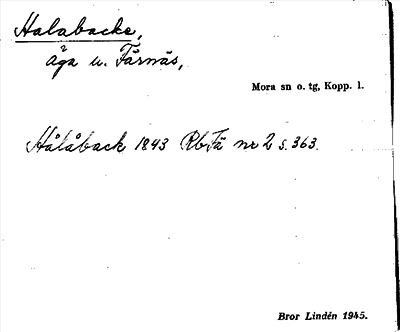 Halabacke,
äga u. Färnäs,
Mora sn o. tg, Kopp. l.
Hålåback 1843 Rb Fä nr 2 s. 363.
Bror Lindén 1945.